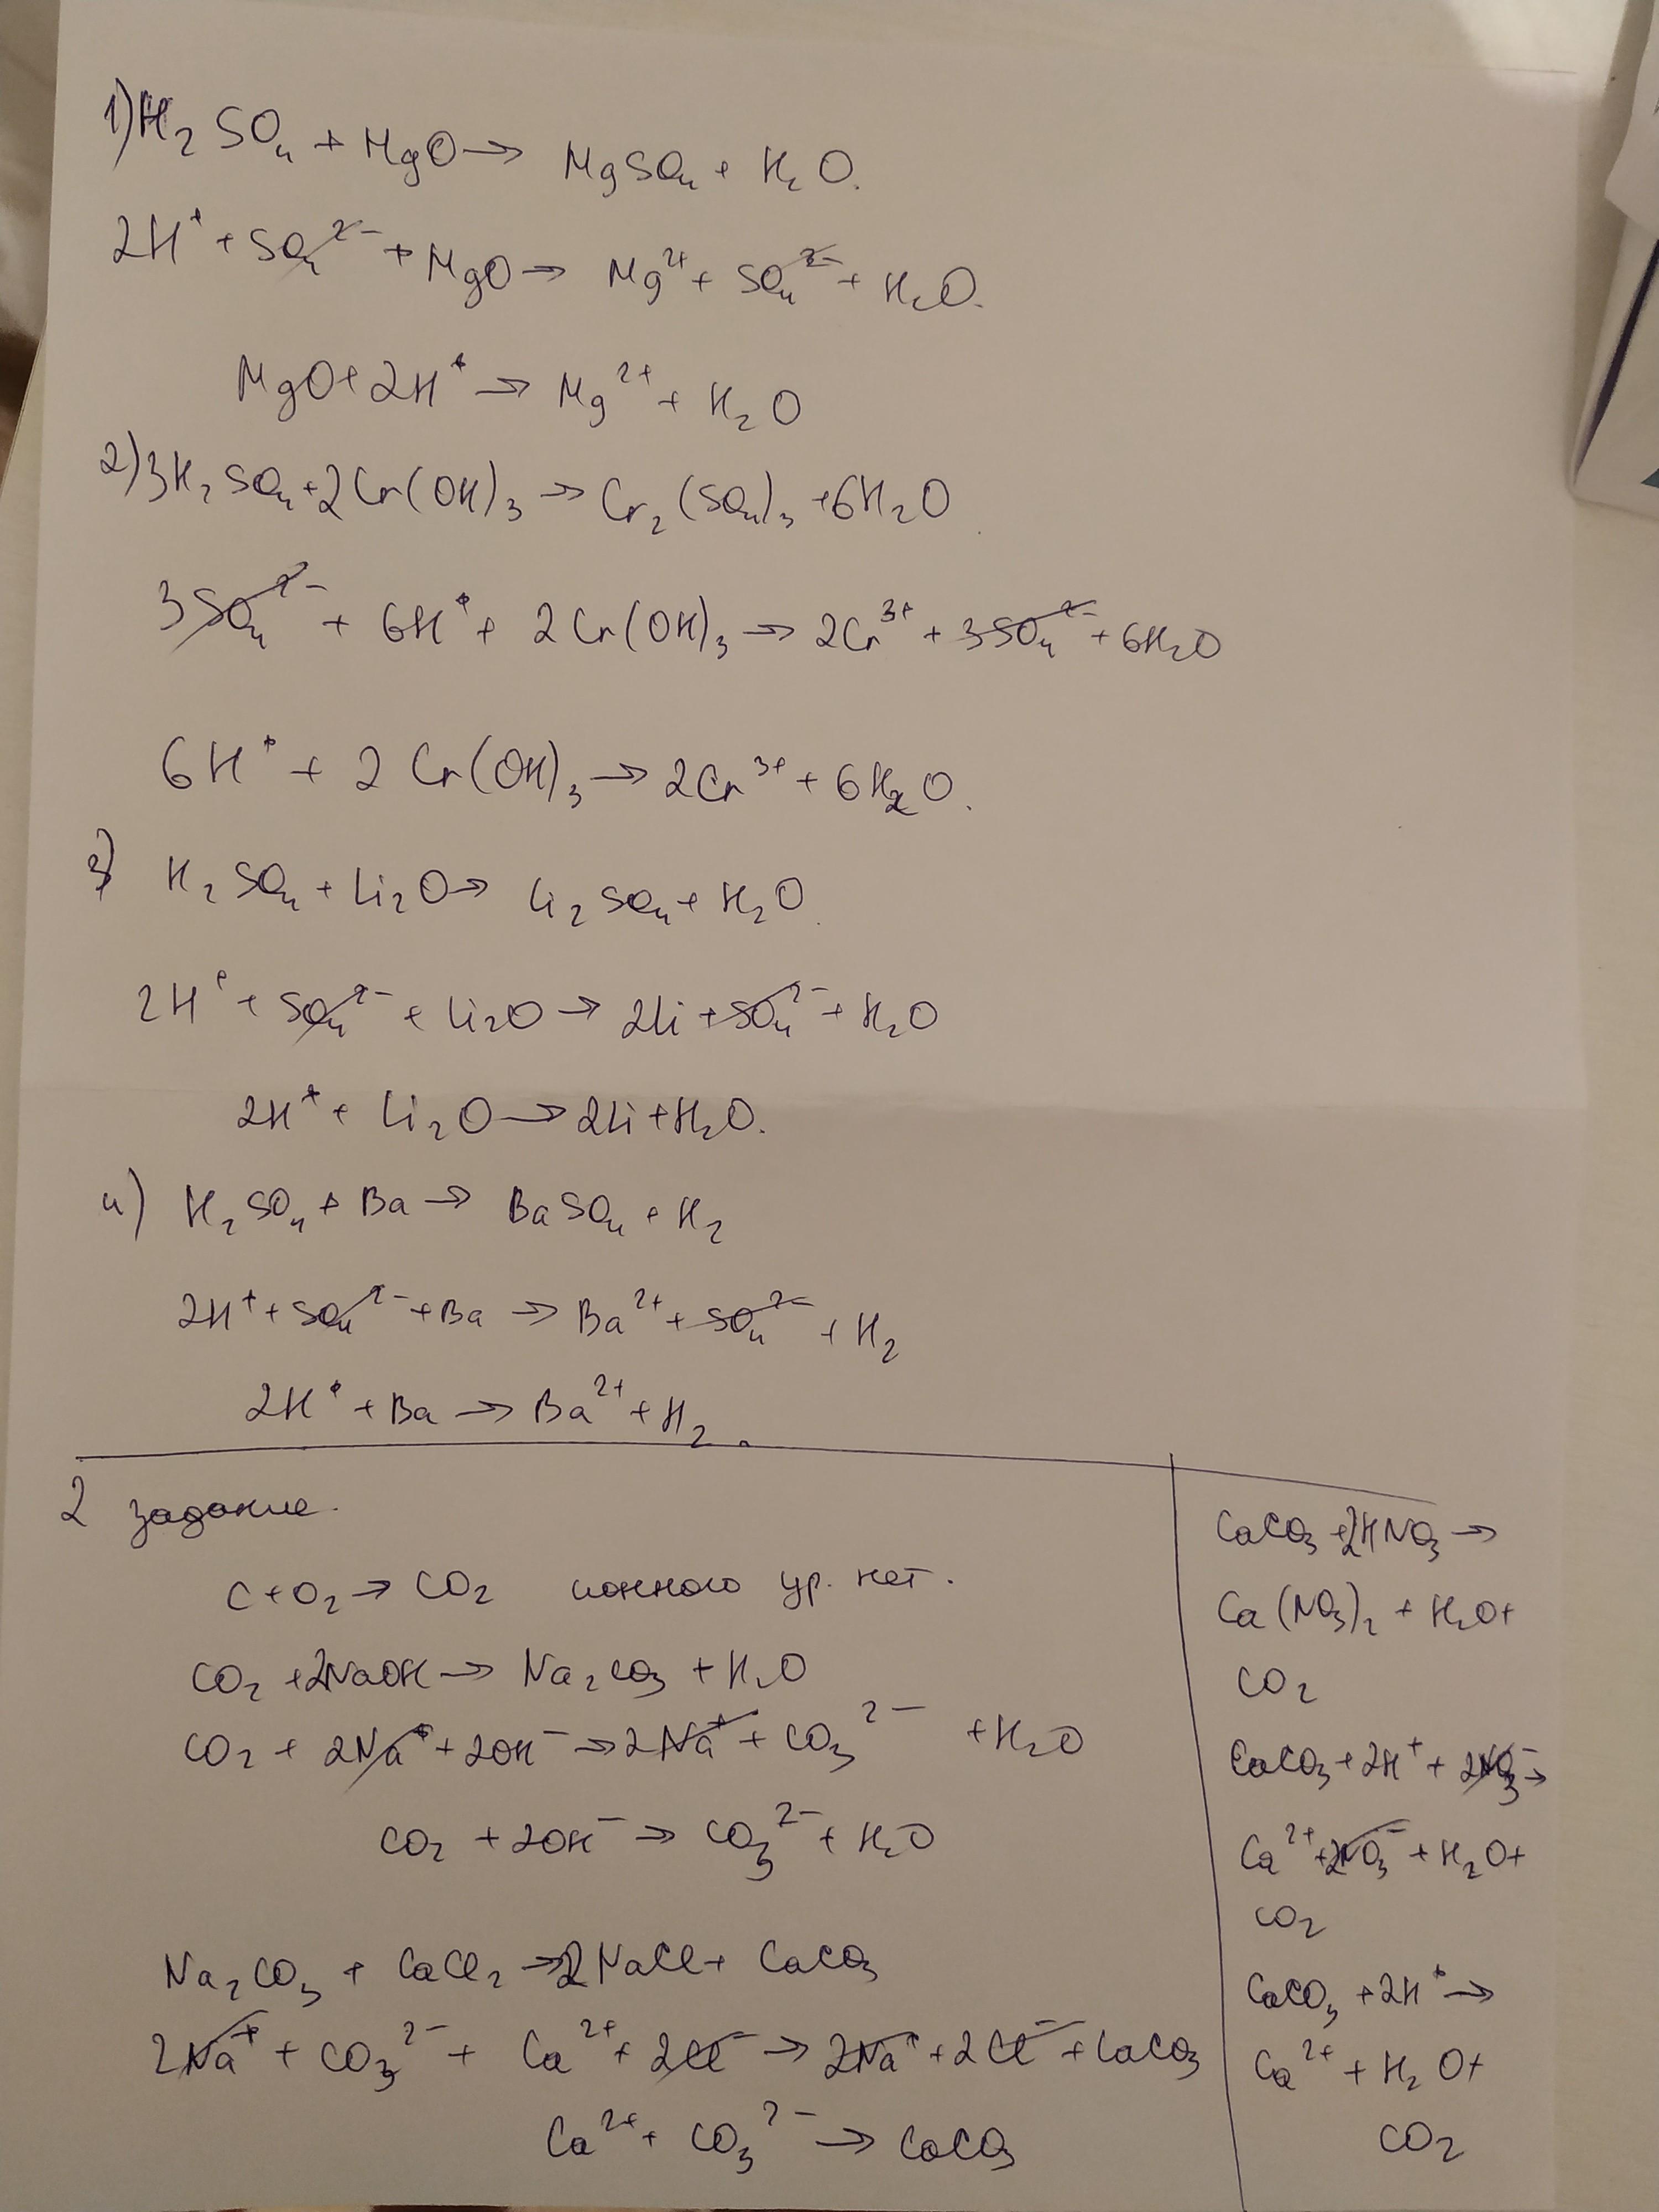 1) H₂SO₄ + MgO → MgSO₄ + H₂O.
2H⁺ + SO₄²⁻ + MgO → Mg²⁺ + SO₄²⁻ + H₂O.
MgO + 2H⁺ → Mg²⁺ + H₂O
2) 3H₂SO₄ + 2Cr(OH)₃ → Cr₂(SO₄)₃ + 6H₂O
3SO₄²⁻ + 6H⁺ + 2Cr(OH)₃ → 2Cr³⁺ + 3SO₄²⁻ + 6H₂O
6H⁺ + 2Cr(OH)₃ → 2Cr³⁺ + 6H₂O.
3) H₂SO₄ + Li₂O → Li₂SO₄ + H₂O.
2H⁺ + SO₄²⁻ + Li₂O → 2Li + SO₄²⁻ + H₂O
2H⁺ + Li₂O → 2Li + H₂O.
4) H₂SO₄ + Ba → BaSO₄ + H₂
2H⁺ + SO₄²⁻ + Ba → Ba²⁺ + SO₄²⁻ + H₂
2H⁺ + Ba → Ba²⁺ + H₂.
2 задание.
C + O₂ → CO₂ ионного ур. нет.
CO₂ + 2NaOH → Na₂CO₃ + H₂O
CO₂ + 2Na⁺ + 2OH⁻ → 2Na⁺ + CO₃²⁻ + H₂O
CO₂ + 2OH⁻ → CO₃²⁻ + H₂O
Na₂CO₃ + CaCl₂ → 2NaCl + CaCO₃
2Na⁺ + CO₃²⁻ + Ca²⁺ + 2Cl⁻ → 2Na⁺ + 2Cl⁻ + CaCO₃
Ca²⁺ + CO₃²⁻ → CaCO₃
CaCO₃ + 2HNO₃ →
Ca(NO₃)₂ + H₂O +
CO₂
CaCO₃ + 2H⁺ + 2NO₃⁻ →
Ca²⁺ + 2NO₃⁻ + H₂O +
CO₂
CaCO₃ + 2H⁺ →
Ca²⁺ + H₂O +
CO₂